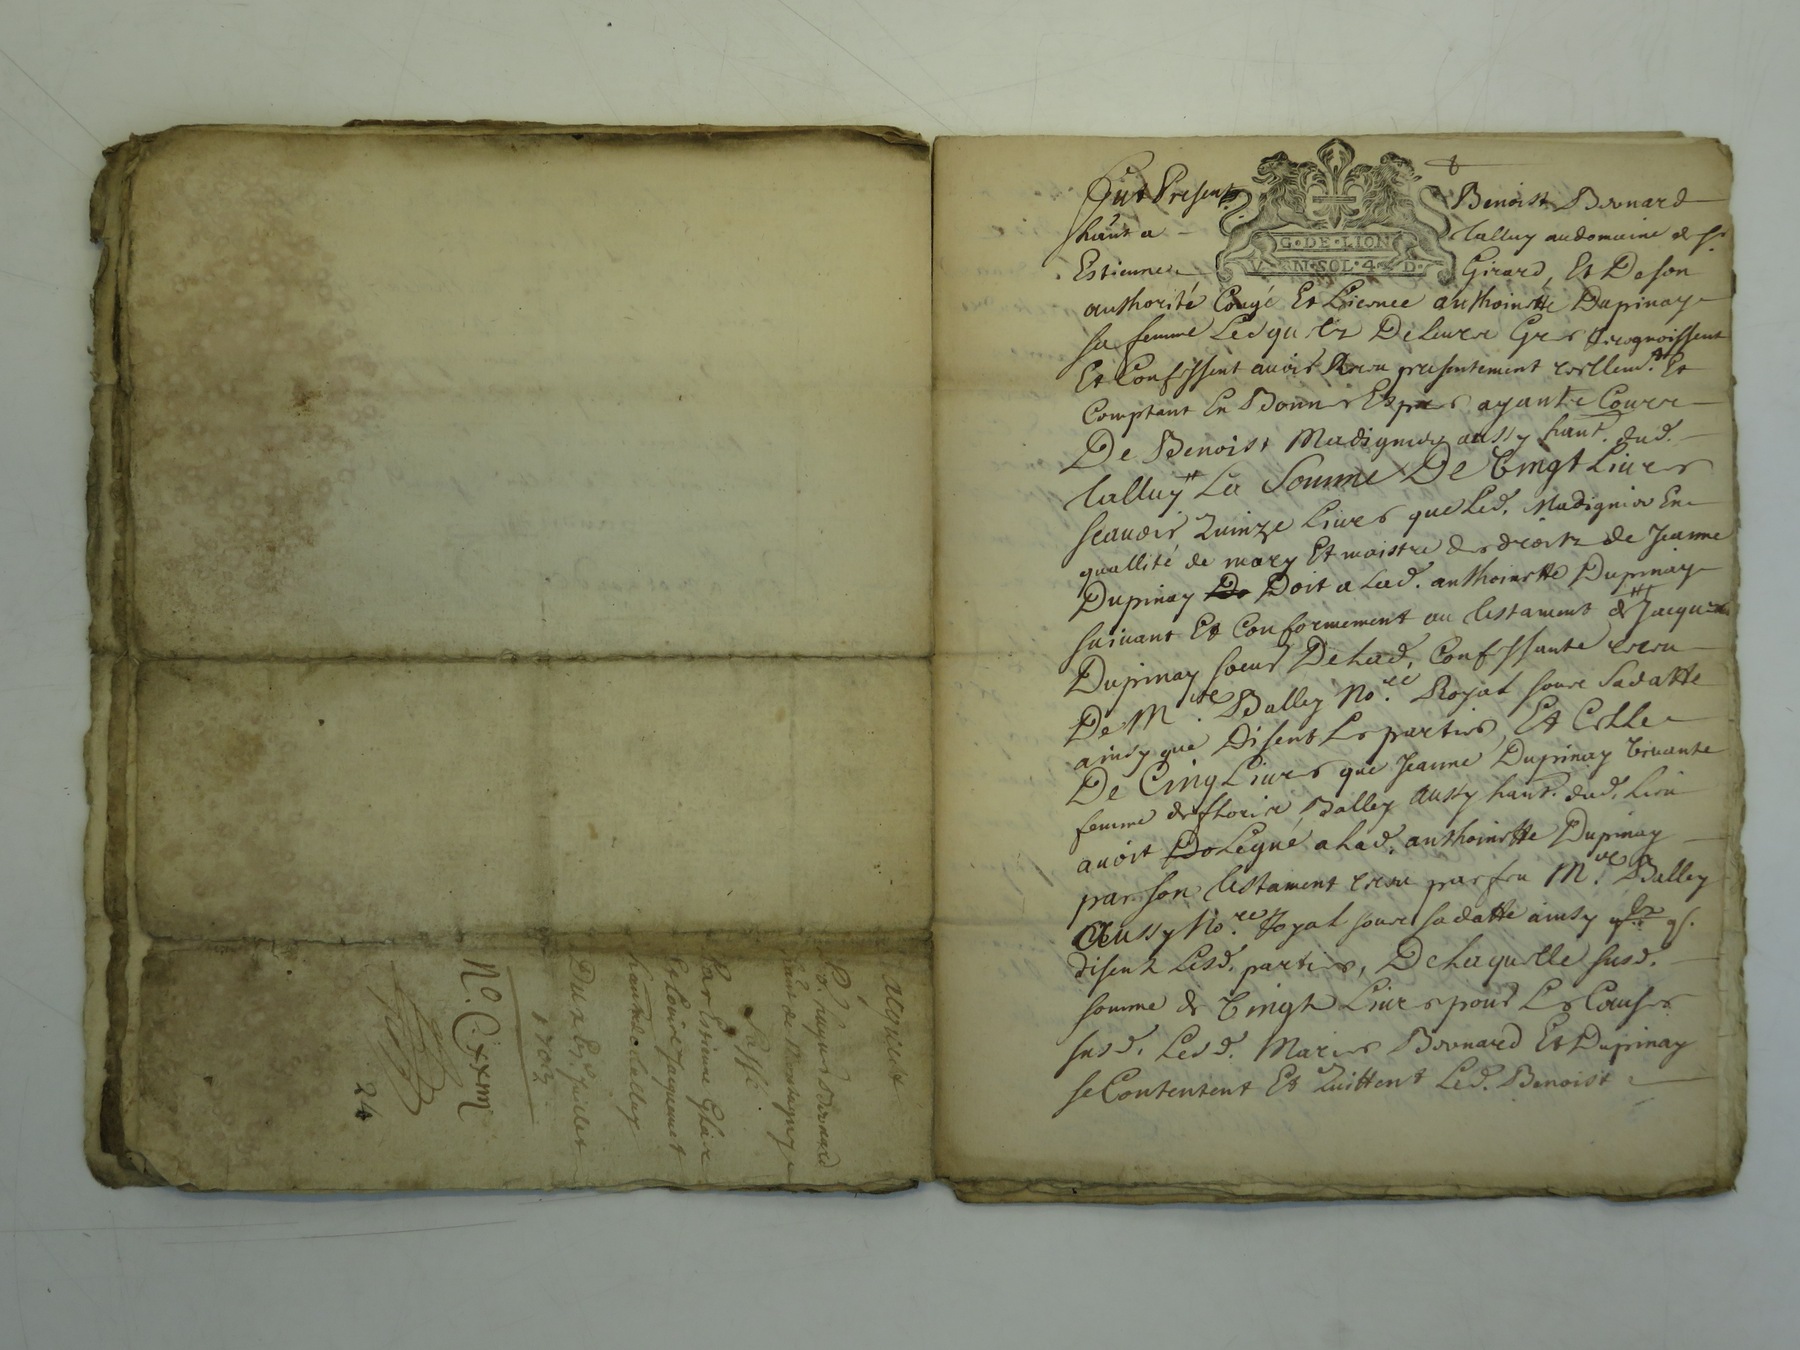 acquict
Par Estienne Glaise
Et Louise Jaquemet
hant de Talluy
Du 2 Er. Juillet
1703
N.o C.xxiii
24
Fut Present Benoist Bonnard
hant a Talluy au domaine de Sr
Estienne Girard, Et De son
G·DE·LION
VN·SOL·4·D·
authorité Congé Et Licence anthoinette Dupinay
sa femme Lesquelz De Leur Gre recognoissent
Et Confessent avoir Receu presentement reellemt. Et
Comptant En Bonnes Especes ayante Cours
De Benoist Madignier aussy hant. dud.
Talluy La Somme De Vingt Livres
scavoir Quinze Livres que Led. Madignier En
quallité de mary Et maistre des droitz de Jeanne
Dupinay Doit a Lad. anthoinette Dupinay
suivant Et Conformement au testament de Jacques
Dupinay soeur De Lad. Confessante receu
De Mtre. Balley No.re Royal soubz sa datte
ainsy que Disent Les parties, Et Celle
De Cinq Livres que Jeanne Dupinay vivante
femme de fleurie Balley aussy hant. dud. Lieu
avoit Legué a Lad. anthoinette Dupinay
par son testament receu par feu M.re Balley
Aussy No.re Royal soubz sa datte ainsy
disent Lesd. parties, De Laquelle susd.
somme de Vingt Livres pour Les Causes
susd. Lesd. Maries Bonnard Et Dupinay
se Contentent Et Quittent Led. Benoist